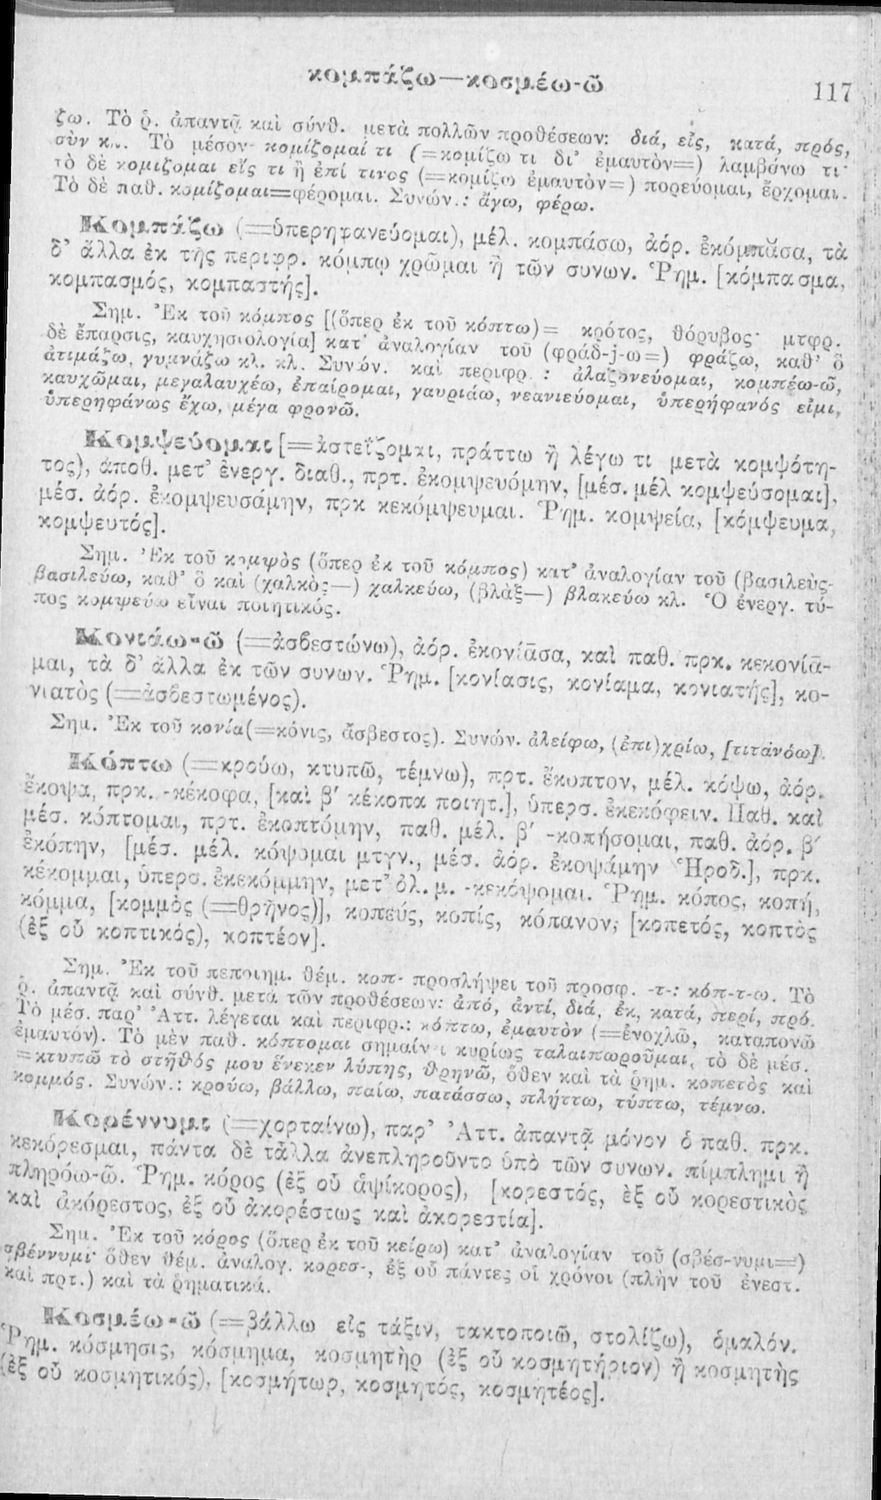 κομπάζω—κοσμέω-ῶ
117
ζω. Τὸ ῥ. ἀπαντᾷ καὶ σύνθ. μετὰ πολλῶν προθέσεων: διά, εἰς, κατά, πρός,
σὺν κ... Τὸ μέσον· κομίζομαί τι (=κομίζω τι δι' ἐμαυτὸν=) λαμβάνω τι·
τὸ δὲ κομίζομαι εἴς τι ἢ ἐπί τινος (=κομίζω ἐμαυτὸν=) πορεύομαι, ἔρχομαι.
Τὸ δὲ παθ. κομίζομαι=φέρομαι. Συνών.: ἄγω, φέρω.
Κομπάζω (=ὑπερηφανεύομαι), μέλ. κομπάσω, ἀόρ. ἐκόμπασα, τὰ
δ' ἄλλα ἐκ τῆς περιφρ. κόμπῳ χρῶμαι ἢ τῶν συνων. Ῥημ. [κόμπασμα,
κομπασμός, κομπαστής].
Σημ. Ἐκ τοῦ κόμπος [(ὅπερ ἐκ τοῦ κόπτω)= κρότος, θόρυβος· μτφρ.
δὲ ἔπαρσις, καυχησιολογία] κατ' ἀναλογίαν τοῦ (φράδ-j-ω=) φράζω, καθ' ὃ
ἀτιμάζω, γυμνάζω κλ. κλ. Συνών. καὶ περιφρ.: ἀλαζονεύομαι, κομπέω-ῶ,
καυχῶμαι, μεγαλαυχέω, ἐπαίρομαι, γαυριάω, νεανιεύομαι, ὑπερήφανός εἰμι,
ὑπερηφάνως ἔχω, μέγα φρονῶ.
Κομψεύομαι [=ἀστεΐζομαι, πράττω ἢ λέγω τι μετὰ κομψότη-
τος), ἀποθ. μετ' ἐνεργ. διαθ., πρτ. ἐκομψευόμην, [μέσ. μέλ κομψεύσομαι],
μέσ. ἀόρ. ἐκομψευσάμην, πρκ κεκόμψευμαι. Ῥημ. κομψεία, [κόμψευμα,
κομψευτός].
Σημ. Ἐκ τοῦ κομψὸς (ὅπερ ἐκ τοῦ κόμπος) κατ' ἀναλογίαν τοῦ (βασιλεὺς-
βασιλεύω, καθ' ὃ καὶ (χαλκὸς—) χαλκεύω, (βλὰξ—) βλακεύω κλ. Ὁ ἐνεργ. τύ-
πος κομψεύω εἶναι ποιητικός.
Κονιάω-ῶ (=ἀσβεστώνω), ἀόρ. ἐκονίασα, καὶ παθ. πρκ. κεκονία-
μαι, τὰ δ' ἄλλα ἐκ τῶν συνων. Ῥημ. [κονίασις, κονίαμα, κονιατής], κο-
νιατὸς (=ἀσβεστωμένος).
Σημ. Ἐκ τοῦ κονία(=κόνις, ἄσβεστος). Συνών. ἀλείφω, (ἐπι)χρίω, [τιτανόω].
Κόπτω (=κρούω, κτυπῶ, τέμνω), πρτ. ἔκοπτον, μέλ. κόψω, ἀόρ.
ἔκοψα, πρκ. -κέκοφα, [καὶ β' κέκοπα ποιητ.], ὑπερσ. ἐκεκόφειν. Παθ. καὶ
μέσ. κόπτομαι, πρτ. ἐκοπτόμην, παθ. μέλ. β' -κοπήσομαι, παθ. ἀόρ. β'
ἐκόπην, [μέσ. μέλ. κόψομαι μτγν., μέσ. ἀόρ. ἐκοψάμην Ἡροδ.], πρκ.
κέκομμαι, ὑπερσ. ἐκεκόμμην, μετ' ὀλ. μ. -κεκόψομαι. Ῥημ. κόπος, κοπή,
κόμμα, [κομμὸς (=θρῆνος)], κοπεύς, κοπίς, κόπανον, [κοπετός, κοπτὸς
(ἐξ οὗ κοπτικός), κοπτέον].
Σημ. Ἐκ τοῦ πεποιημ. θέμ. κοπ- προσλήψει τοῦ προσφ. -τ-: κόπ-τ-ω. Τὸ
ῥ. ἀπαντᾷ καὶ σύνθ. μετὰ τῶν προθέσεων: ἀπό, ἀντί, διά, ἐκ, κατά, περί, πρό.
Τὸ μέσ. παρ' Ἀττ. λέγεται καὶ περιφρ.: κόπτω, ἐμαυτὸν (=ἐνοχλῶ, καταπονῶ
ἐμαυτόν). Τὸ μὲν παθ. κόπτομαι σημαίνει κυρίως ταλαιπωροῦμαι, τὸ δὲ μέσ.
=κτυπῶ τὸ στῆθός μου ἕνεκεν λύπης, θρηνῶ, ὅθεν καὶ τὰ ῥημ. κοπετὸς καὶ
κομμός. Συνών.: κρούω, βάλλω, παίω, πατάσσω, πλήττω, τύπτω, τέμνω.
Κορέννυμι (=χορταίνω), παρ' Ἀττ. ἀπαντᾷ μόνον ὁ παθ. πρκ.
κεκόρεσμαι, πάντα δὲ τἆλλα ἀνεπληροῦντο ὑπὸ τῶν συνων. πίμπλημι ἢ
πληρόω-ῶ. Ῥημ. κόρος (ἐξ οὗ ἁψίκορος), [κορεστός, ἐξ οὗ κορεστικὸς
καὶ ἀκόρεστος, ἐξ οὗ ἀκορέστως καὶ ἀκορεστία].
Σημ. Ἐκ τοῦ κόρος (ὅπερ ἐκ τοῦ κείρω) κατ' ἀναλογίαν τοῦ (σβέσ-νυμι=)
σβέννυμι· ὅθεν θέμ. ἀναλογ. κορεσ-, ἐξ οὗ πάντες οἱ χρόνοι (πλὴν τοῦ ἐνεστ.
καὶ πρτ.) καὶ τὰ ῥηματικά.
Κοσμέω-ῶ (=βάλλω εἰς τάξιν, τακτοποιῶ, στολίζω), ὁμαλόν.
Ῥημ. κόσμησις, κόσμημα, κοσμητὴρ (ἐξ οὗ κοσμητήριον) ἢ κοσμητὴς
(ἐξ οὗ κοσμητικός), [κοσμήτωρ, κοσμητός, κοσμητέος].